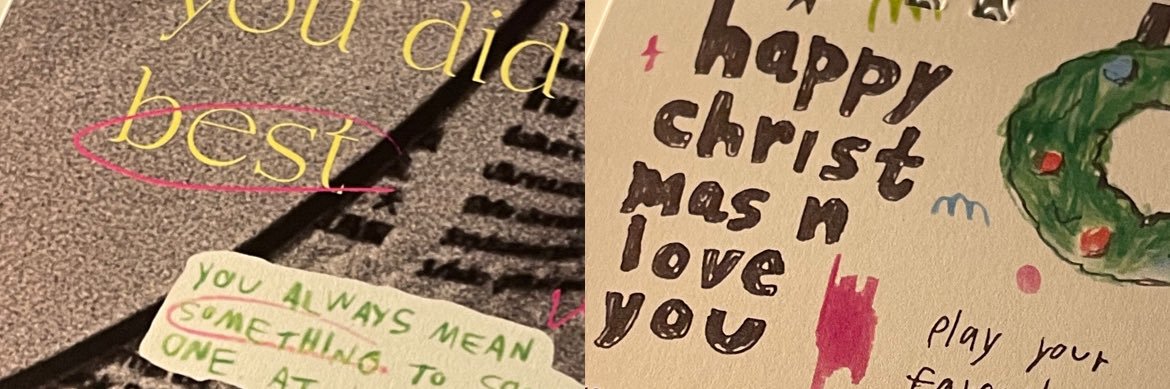 you did
best
YOU ALWAYS MEAN
SOMETHING. TO
ONE AT
happy
christ
mas n
love
you
play your